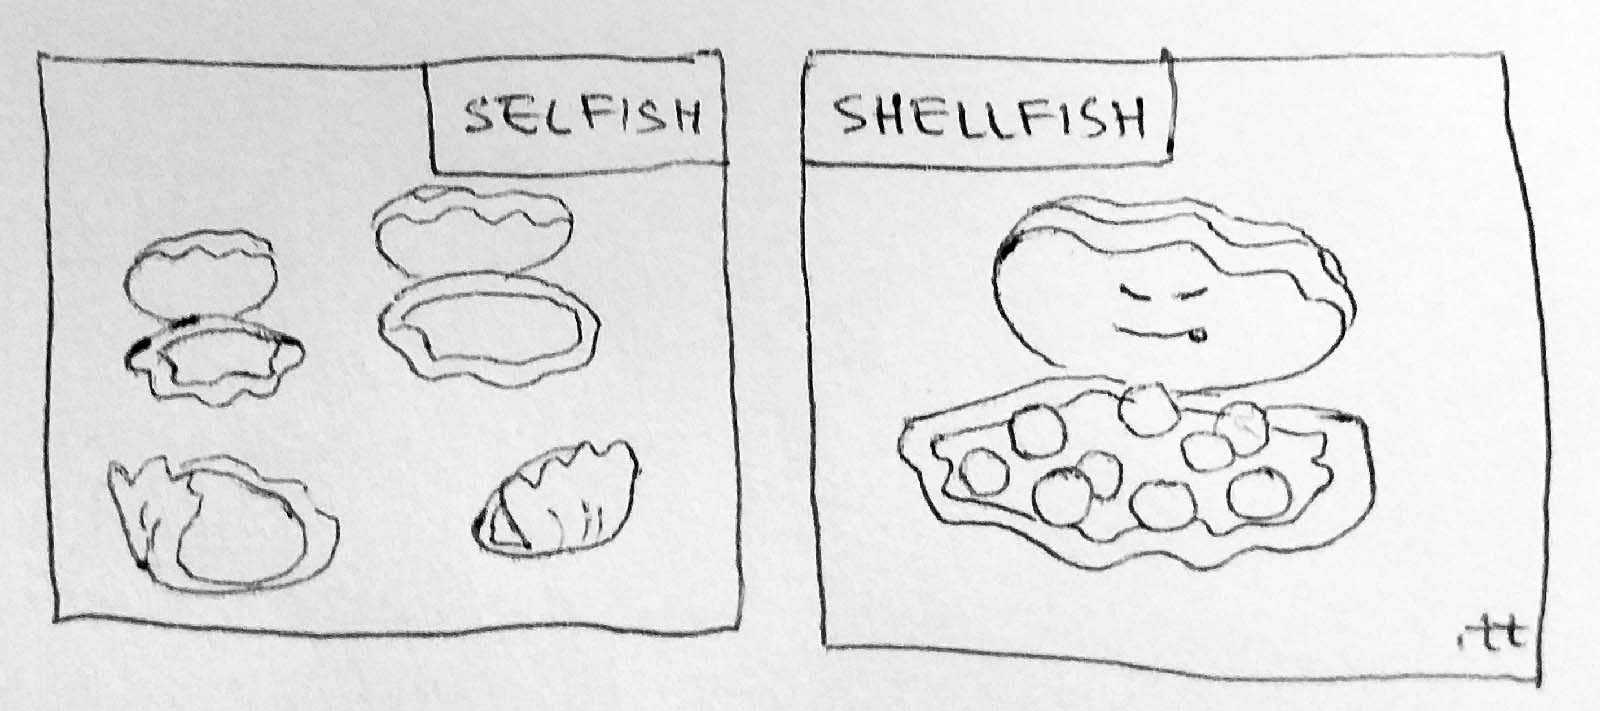 SELFISH
SHELLFISH
.tt